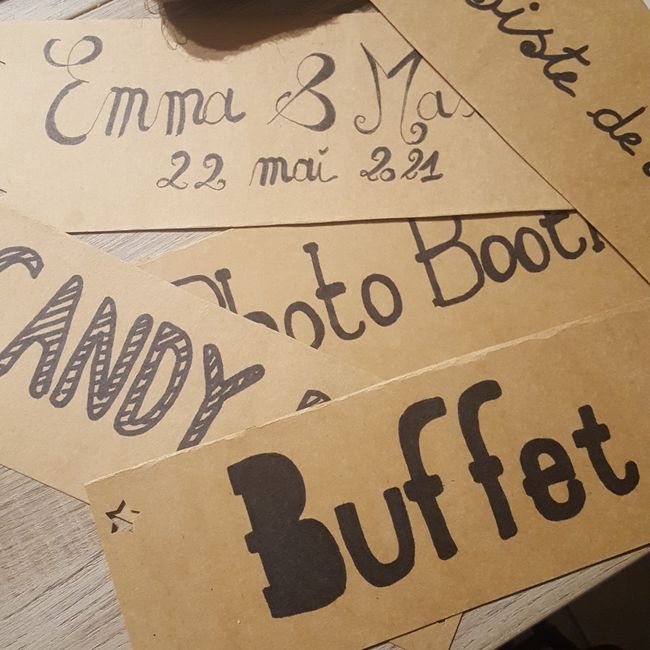 Emma & Ma
22 mai 2021
de
Photo Booth
CANDY
Buffet